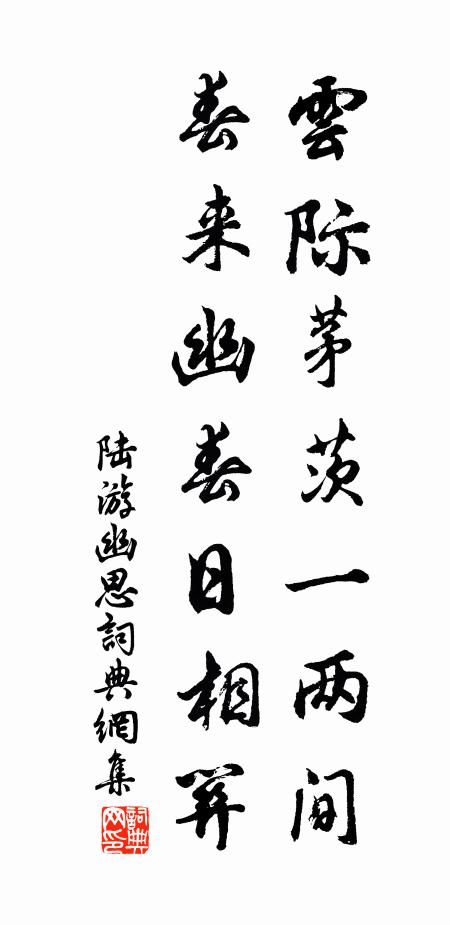 雲際茅茨一两間
春来幽春日相關
陆游幽思詞典網集
詞典网印